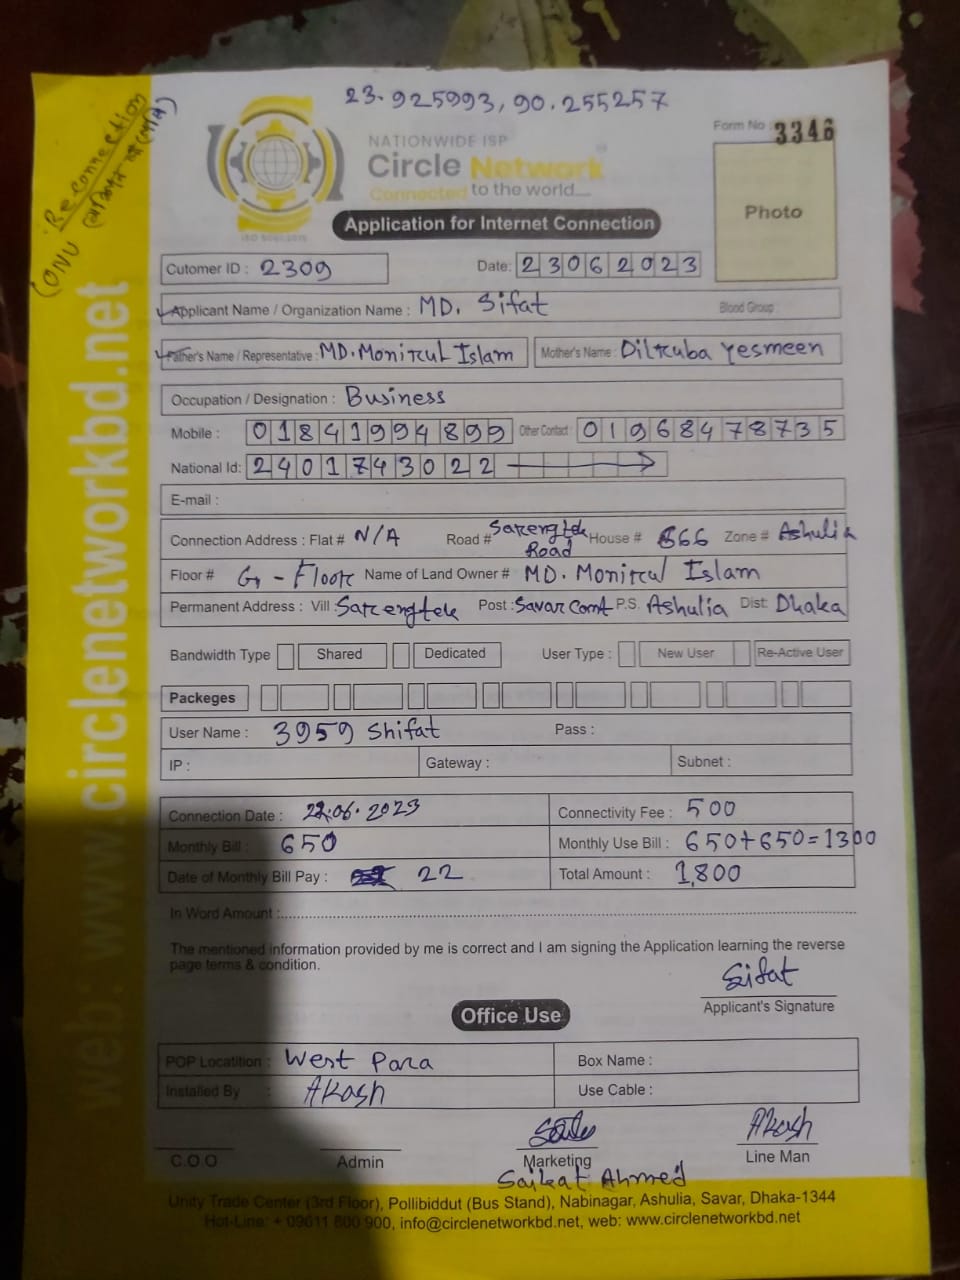 23.925993, 90.255257
Reconnection
(ONU
NATIONWIDE ISP
Circle Network
Connected to the world....
Form No : 3346
Photo
Application for Internet Connection
Cutomer ID : 2309
Date: 23062023
Applicant Name / Organization Name : MD. Sifat
Blood Group :
Father's Name / Representative : MD. Monirul Islam
Mother's Name : Dilruba Yesmeen
Occupation / Designation : Business
Mobile : 01841994899
Other Contact : 01968478735
National Id: 2401743022
E-mail :
Connection Address : Flat # N/A Road # Sarengtek Road House # 666 Zone # Ashulia
Floor # G - Floor Name of Land Owner # MD. Monirul Islam
Permanent Address : Vill : Sarengtek Post : Savar Cant P.S. Ashulia Dist: Dhaka
Bandwidth Type Shared Dedicated User Type : New User Re-Active User
Packeges
User Name : 3959 Shifat Pass :
IP : Gateway : Subnet :
Connection Date : 22.06.2023 Connectivity Fee : 500
Monthly Bill : 650 Monthly Use Bill : 650+650=1300
Date of Monthly Bill Pay : 22 Total Amount : 1,800
In Word Amount :
The mentioned information provided by me is correct and I am signing the Application learning the reverse
page terms & condition.
Sifat
Applicant's Signature
Office Use
POP Locatition : West Para Box Name :
Installed By : Akash Use Cable :
Akash
C.O.O Admin Marketing Line Man
Saikat Ahmed
Unity Trade Center (3rd Floor), Pollibiddut (Bus Stand), Nabinagar, Ashulia, Savar, Dhaka-1344
Hot-Line: + 09611 800 900, info@circlenetworkbd.net, web: www.circlenetworkbd.net
web: www.circlenetworkbd.net